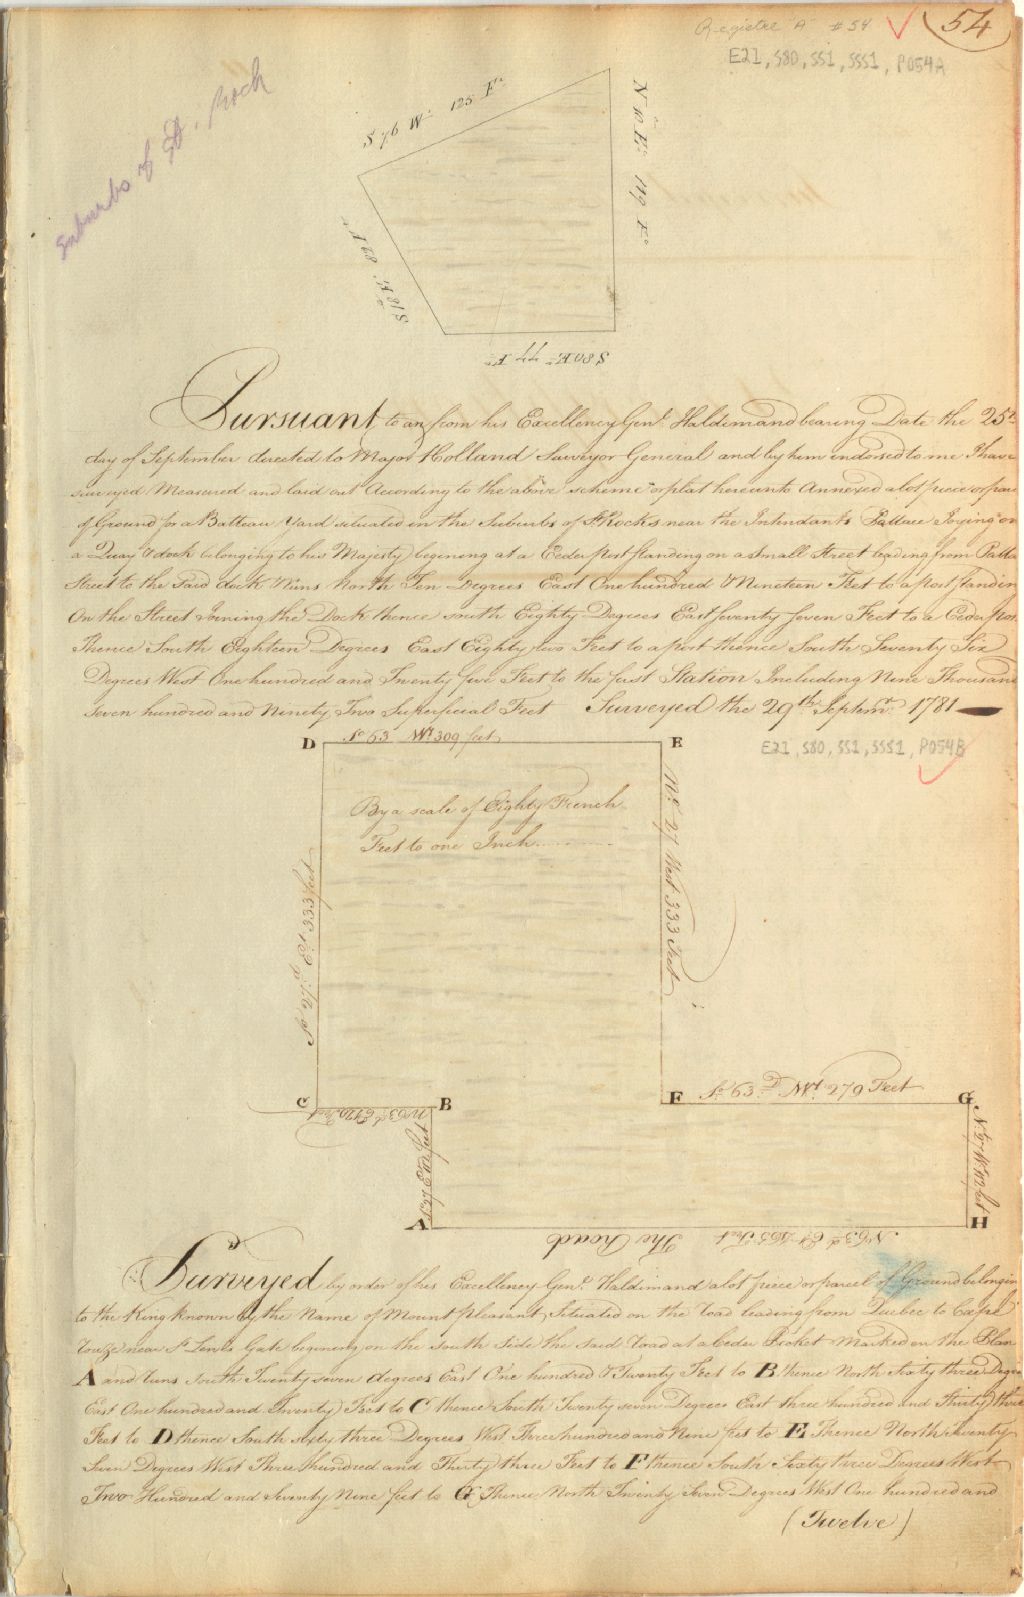 Registre A #54
54
E21, S80, SS1, SSS1, P054A
Suburbs of St. Roch
S 76 Wt. 125 Ft.
No. 10 Et. 119 Ft.
S 18 Et. 82 Ft.
S 80 Et. 77 Ft.
Pursuant to an from his Excellency Genl. Haldimand bearing Date the 25th
day of September directed to Major Holland Surveyor General and by him endorsed to me I have
surveyed Measured and laid out According to the above scheme or plat hereunto Annexed a lot piece or parcel
of Ground for a Batteau Yard situated in the Suburbs of St Rocks near the Intendants Pallace Joying on
a Quay & dock belonging to his Majesty begening at a Ceder post standing on a small Street leading from Pallace
Street to the Said dock & Runs North Ten Degrees East One hundred & Nineteen Feet to a post standing
On the Street Joining the Dock thence south Eighty Degrees East Seventy Seven Feet to a Ceder post
Thence South Eighteen Degrees East Eighty two Feet to a post thence South Seventy Six
Degrees West One hundred and Twenty five Feet to the first Station Including Nine Thousand
Seven hundred and Ninety Two Superficial Feet Surveyed the 29th Septmr. 1781
D So 63 Wt. 309 feet E
E21, S80, SS1, SSS1, P054B
By a scale of Eighty French
Feet to one Inch
No. 27 West 333 Feet
So. 27d. Et. 333 feet
C No 63d. Et 120 Feet B
F So. 63d. Wt. 279 Feet G
So 27 Et 120 feet
No. 27 Wt 112 feet
A The Road No 63d. Et 465 Feet H
Surveyed by order of his Excellency Genl. Haldimand a lot piece or parcel of Ground belonging
to the King known by the Name of Mount pleasant, Situated on the road leading from Quebec to Cape
Rouge near St Lewis Gate begening on the South Side the said road at a Ceder Picket Marked on the Plan
A and runs South Twenty seven degrees East One hundred & Twenty Feet to B thence North Sixty three Degrees
East One hundred and Twenty Feet to C thence South Twenty seven Degrees East three hundred and thirty three
Feet to D thence South sixty three Degrees West Three hundred and Nine feet to E Thence North Twenty
Seven Degrees West Three hundred and Thirty three Feet to F thence South Sixty three Degrees West
Two Hundred and Seventy Nine feet to G Thence North Twenty Seven Degrees West One hundred and
(Twelve)